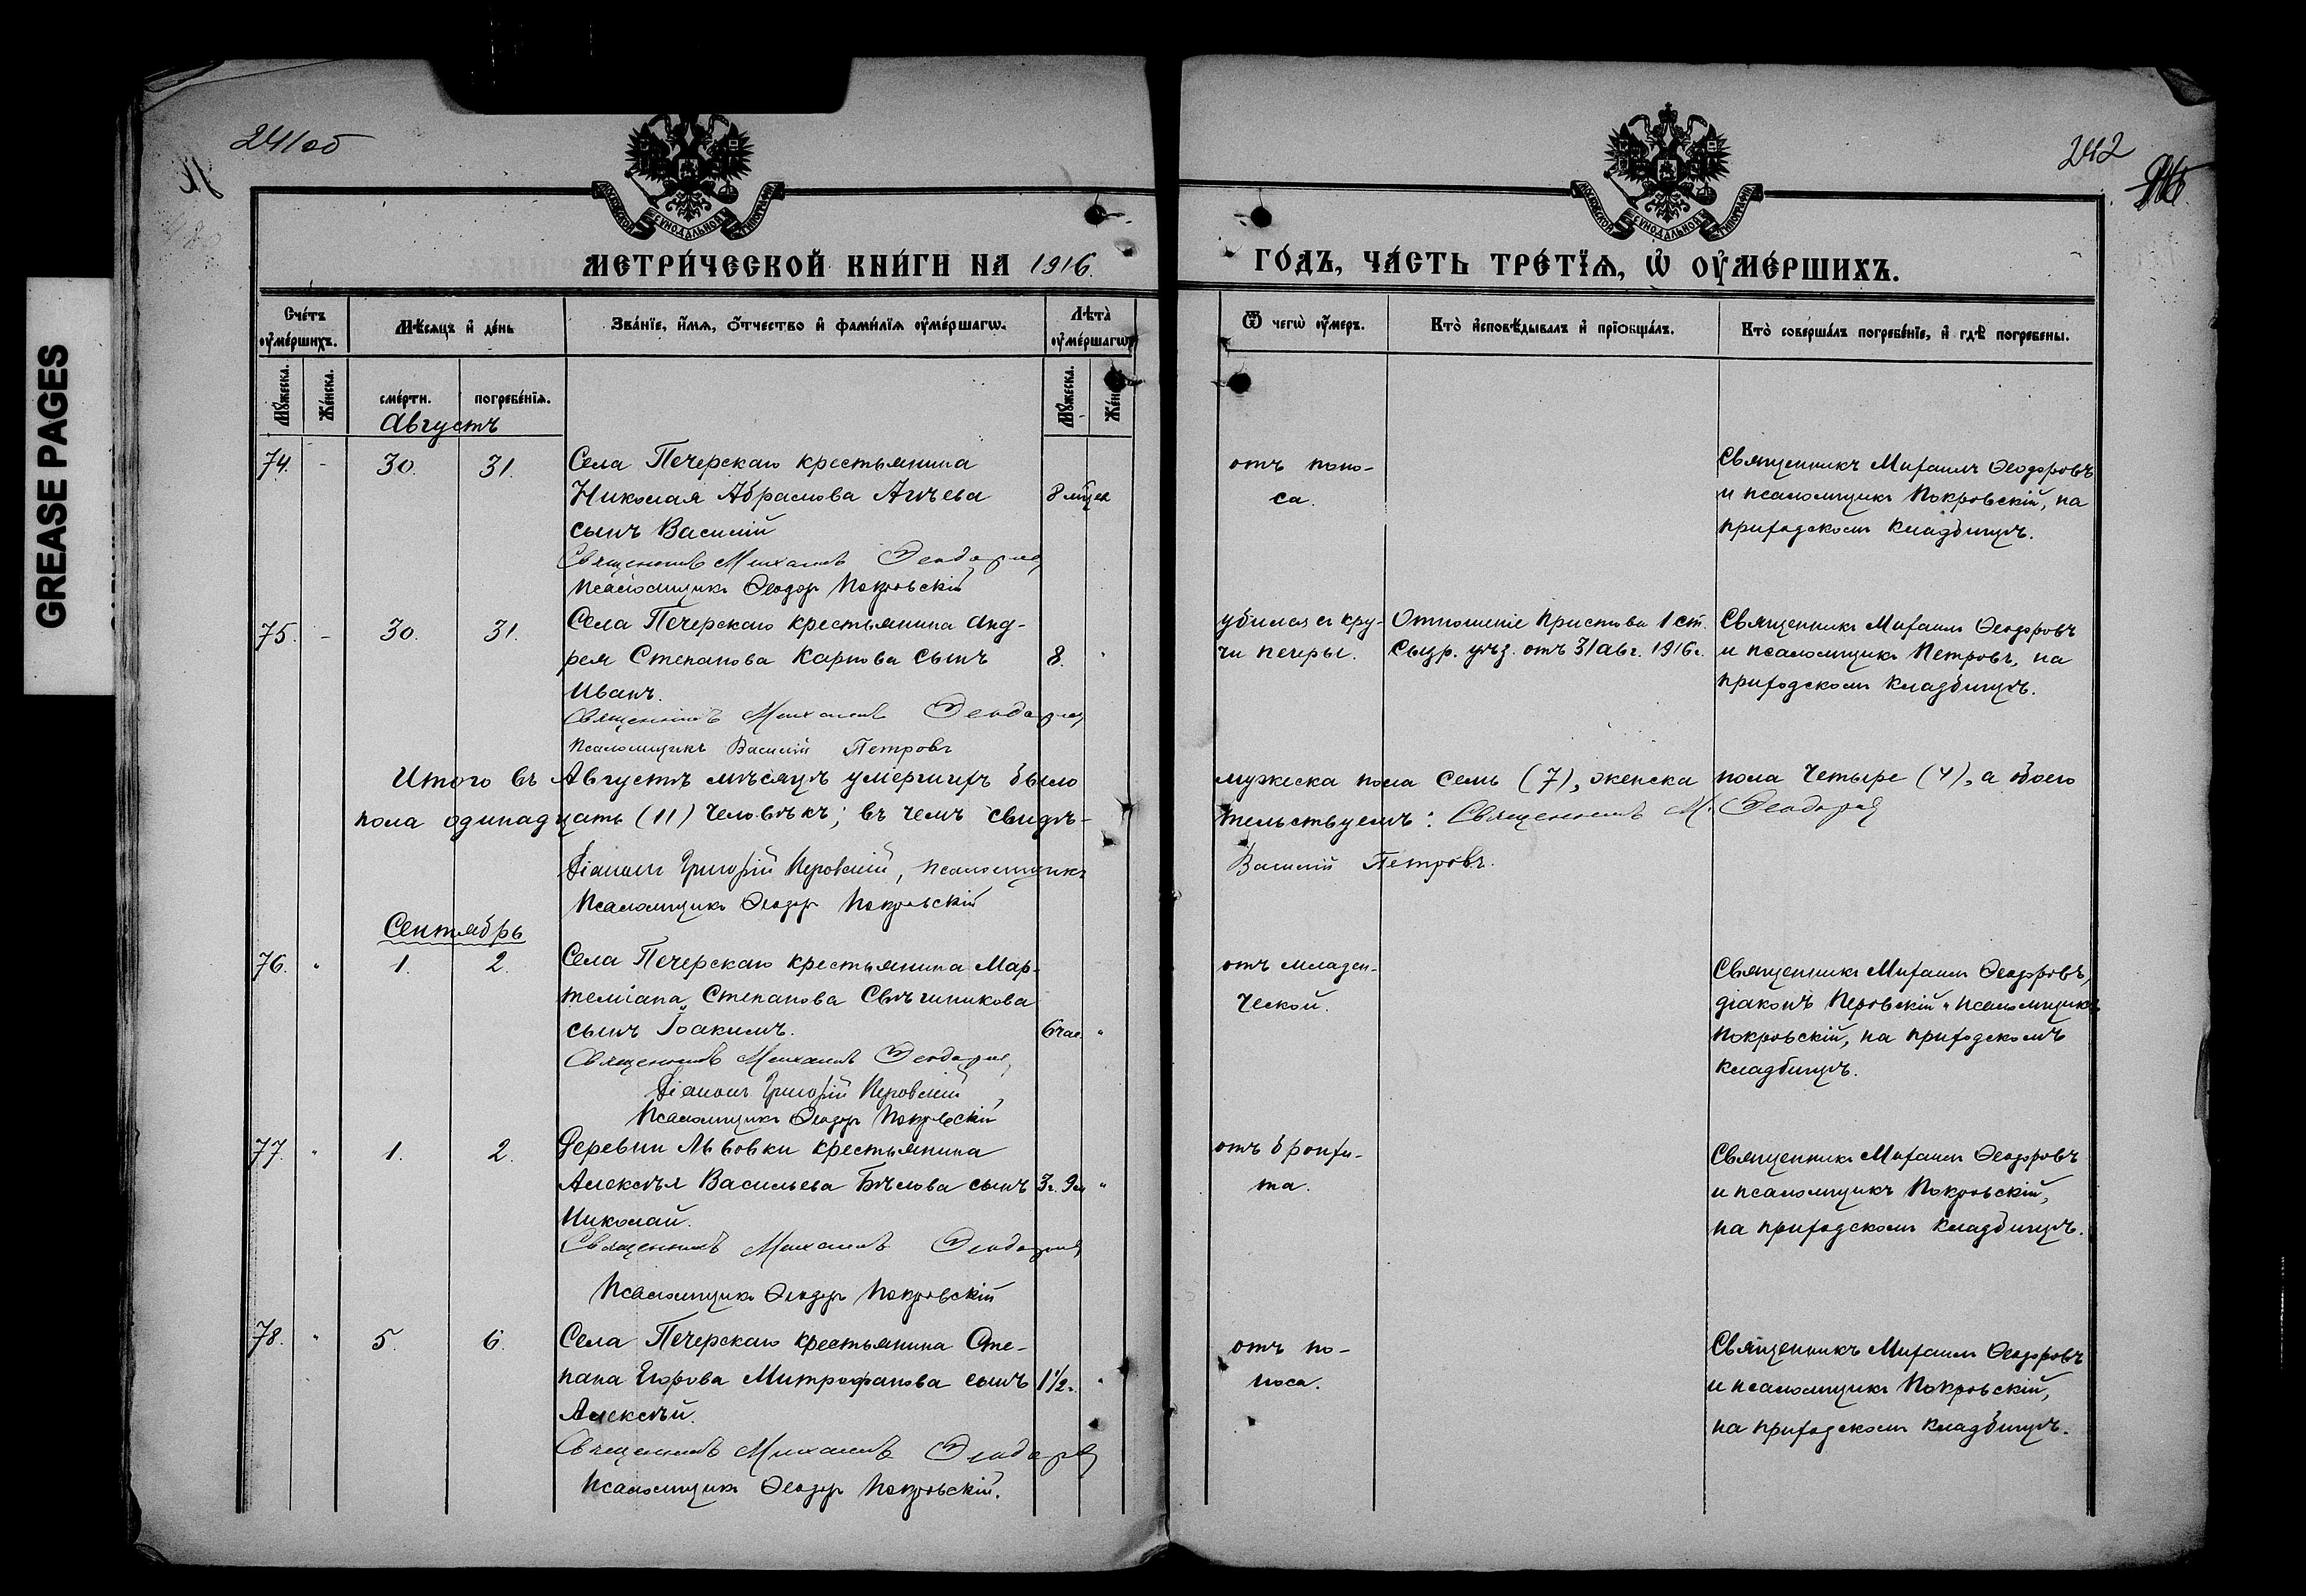 GREASE PAGES
241об
242
МЕТРИ́ЧЕСКОЙ КНИ́ГИ НА 1916.
ГО́ДЪ, ЧА́СТЬ ТРЕ́ТЇѦ, Ѡ҆ ОУ҆МЕ́РШИХЪ.
Сче́тъ оу҆ме́ршихъ.
Мѣ́сяцъ и҆ де́нь
Зва́нїе, и҆́мя, ѻ҆́тчество и҆ фами́лїя оу҆ме́ршагѡ.
Лѣ́та оу҆ме́ршагѡ
Ѿ чегѡ̀ оу҆́меръ.
Кто̀ и҆сповѣ́дывалъ и҆ прїѡбща́лъ.
Кто̀ соверша́лъ погребе́нїе, и҆ гдѣ̀ погребены.
Мꙋ́жеска.
Же́нска.
сме́рти.
погребе́нїя.
Мꙋ́жеска.
Же́нска.
Августъ
74. - 30. 31. Села Печерскаго крестьянина
Николая Абрамова 8 мѣсяц
сынъ Василій
Священникъ Михаилъ Ѳеодоровъ
Псаломщикъ Ѳеодоръ Покровскій
отъ поно-
са.
Священникъ Михаилъ Ѳеодоровъ
и псаломщикъ Покровскій, на
приходскомъ кладбищѣ.
75. - 30. 31. Села Печерскаго крестьянина Анд-
рея Степанова Карпова сынъ 8. "
Иванъ.
Священникъ Михаилъ Ѳеодоровъ
Псаломщикъ Василій Петровъ
убился съ кру-
чи пещеры.
Отношеніе Пристава 1 ст.
Сызр. уѣз. отъ 31 авг. 1916 г.
Священникъ Михаилъ Ѳеодоровъ
и псаломщикъ Петровъ, на
приходскомъ кладбищѣ.
Итого въ Августѣ мѣсяцѣ умершихъ было мужеска пола семь (7), женска пола четыре (4), а обоего
пола одинадцать (11) человѣкъ; въ чемъ свидѣ- тельствуемъ: Священникъ М. Ѳеодоровъ
Діаконъ Григорій Перовскій, псаломщикъ Василій Петровъ.
Псаломщикъ Ѳеодоръ Покровскій
Сентябрь
76. " 1. 2. Села Печерскаго крестьянина Мар-
теміана Степанова Свѣчникова
сынъ Іоакимъ. 6 час. "
Священникъ Михаилъ Ѳеодоровъ
Діаконъ Григорій Перовскій
Псаломщикъ Ѳеодоръ Покровскій
отъ младен-
ческой.
Священникъ Михаилъ Ѳеодоровъ,
діаконъ Перовскій и псаломщикъ
Покровскій, на приходскомъ
кладбищѣ.
77. " 1. 2. Деревни Львовки крестьянина
Алексѣя Васильева Бѣлова сынъ 3 г. 9 м "
Николай.
Священникъ Михаилъ Ѳеодоровъ
Псаломщикъ Ѳеодоръ Покровскій
отъ бронхи-
та.
Священникъ Михаилъ Ѳеодоровъ
и псаломщикъ Покровскій,
на приходскомъ кладбищѣ.
78. " 5. 6. Села Печерскаго крестьянина Сте-
пана Егорова Митрофанова сынъ 1 1/2 г. "
Алексѣй.
Священникъ Михаилъ Ѳеодоровъ
Псаломщикъ Ѳеодоръ Покровскій.
отъ по-
носа.
Священникъ Михаилъ Ѳеодоровъ
и псаломщикъ Покровскій,
на приходскомъ кладбищѣ.